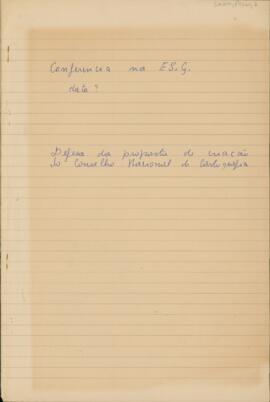 Conferencia na E.S.G.
data?
Defesa da proposta de criação
do Conselho Nacional de Cartografia